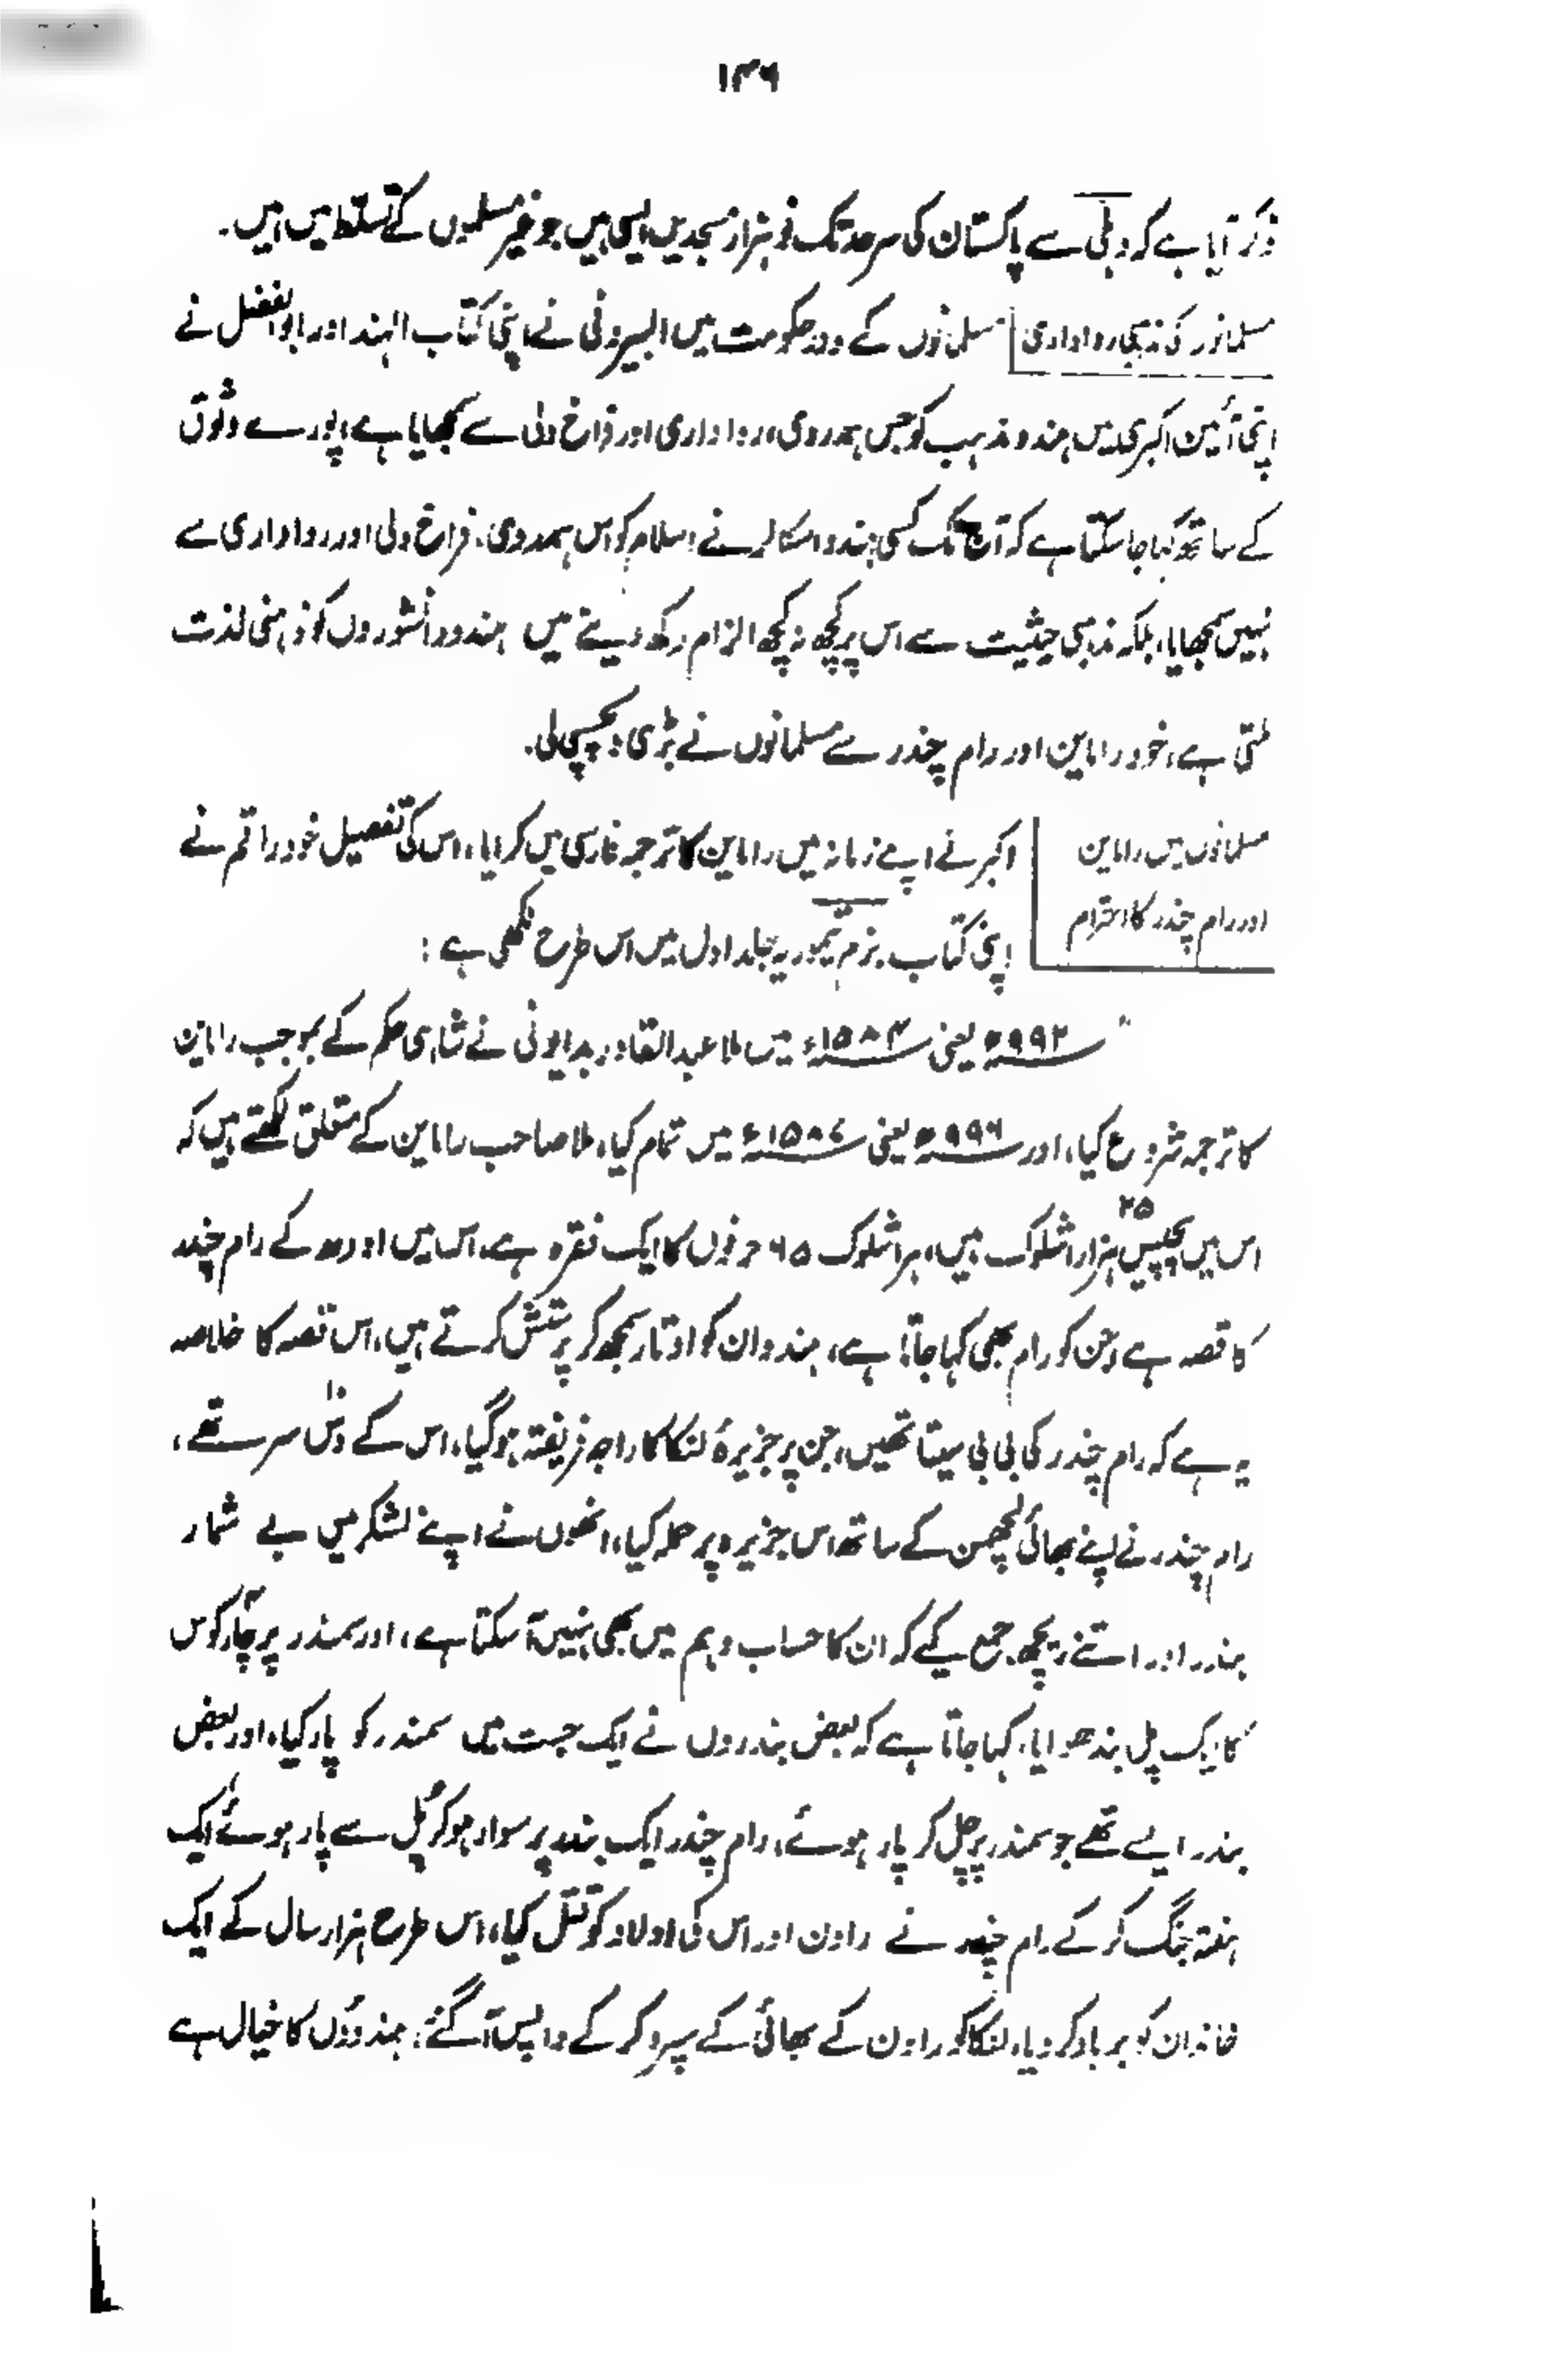 ۱۳۶
ذکر آیا ہے کہ دہلی سے پاکستان کی سرحد تک نو ہزار مسجدیں ایسی ہیں جو غیر مسلموں کے تسلط میں ہیں۔
مسلمانوں کی مذہبی رواداری مسلمانوں کے دور حکومت میں البیرونی نے اپنی کتاب الہند اور ابوالفضل نے
اپنی آئین اکبری میں ہندو مذہب کو جس ہمدردی، رواداری اور فراخ دلی سے سمجھایا ہے، پورے وثوق
کے ساتھ کہا جا سکتا ہے کہ آج تک کسی ہندو اسکالر نے اسلام کو اس ہمدردی، فراخ دلی اور رواداری سے
نہیں سمجھایا، بلکہ مذہبی حیثیت سے اس پر کچھ نہ کچھ الزام رکھ دینے میں ہندو دانشوروں کو ذہنی لذت
ملتی ہے، خود راماین اور رام چندر سے مسلمانوں نے بڑی دلچسپی لی۔
مسلمانوں میں راماین
اور رام چندر کا احترام
اکبر نے اپنے زمانہ میں راماین کا ترجمہ فارسی میں کرایا، اس کی تفصیل خود راقم نے
اپنی کتاب بزم تیموریہ جلد اول میں اس طرح لکھی ہے :
"۹۹۲ھ یعنی ۱۵۸۴ء میں ملا عبدالقادر بدایونی نے شاہی حکم کے بموجب راماین
کا ترجمہ شروع کیا، اور ۹۹۶ھ یعنی ۱۵۸۷ء میں تمام کیا، ملا صاحب راماین کے متعلق لکھتے ہیں کہ
اس میں پچیس ۲۵ ہزار اشلوک ہیں، ہر اشلوک ۶۵ حرفوں کا ایک فقرہ ہے، اس میں اودھ کے رام چند
کا قصہ ہے، جن کو رام بھی کہا جاتا ہے، ہندو ان کو اوتار سمجھ کر پرستش کرتے ہیں، اس قصہ کا خلاصہ
یہ ہے کہ رام چندر کی بی بی سیتا تھیں، جن پر جزیرۂ لنکا کا راجہ فریفتہ ہو گیا، اس کے دس سر تھے،
رام چندر نے اپنے بھائی لچھمن کے ساتھ اس جزیرہ پر حملہ کیا، انھوں نے اپنے لشکر میں بے شمار
بندر اور اتنے ریچھ جمع کیے کہ ان کا حساب وہم میں بھی نہیں آ سکتا ہے، اور سمندر پر چار کوس
کا ایک پل بندھوایا، کہا جاتا ہے کہ بعض بندروں نے ایک جست میں سمندر کو پار کیا، اور بعض
بندر ایسے تھے جو سمندر پر چل کر پار ہوئے، رام چندر ایک بندر پر سوار ہو کر پل سے پار ہوئے، ایک
ہفتہ جنگ کر کے رام چندر نے راون اور اس کی اولاد کو قتل کیا، اس طرح ہزار سال کے ایک
خاندان کو برباد کر دیا، لنکا کو راون کے بھائی کے سپرد کر کے واپس آ گئے، ہندوؤں کا خیال ہے